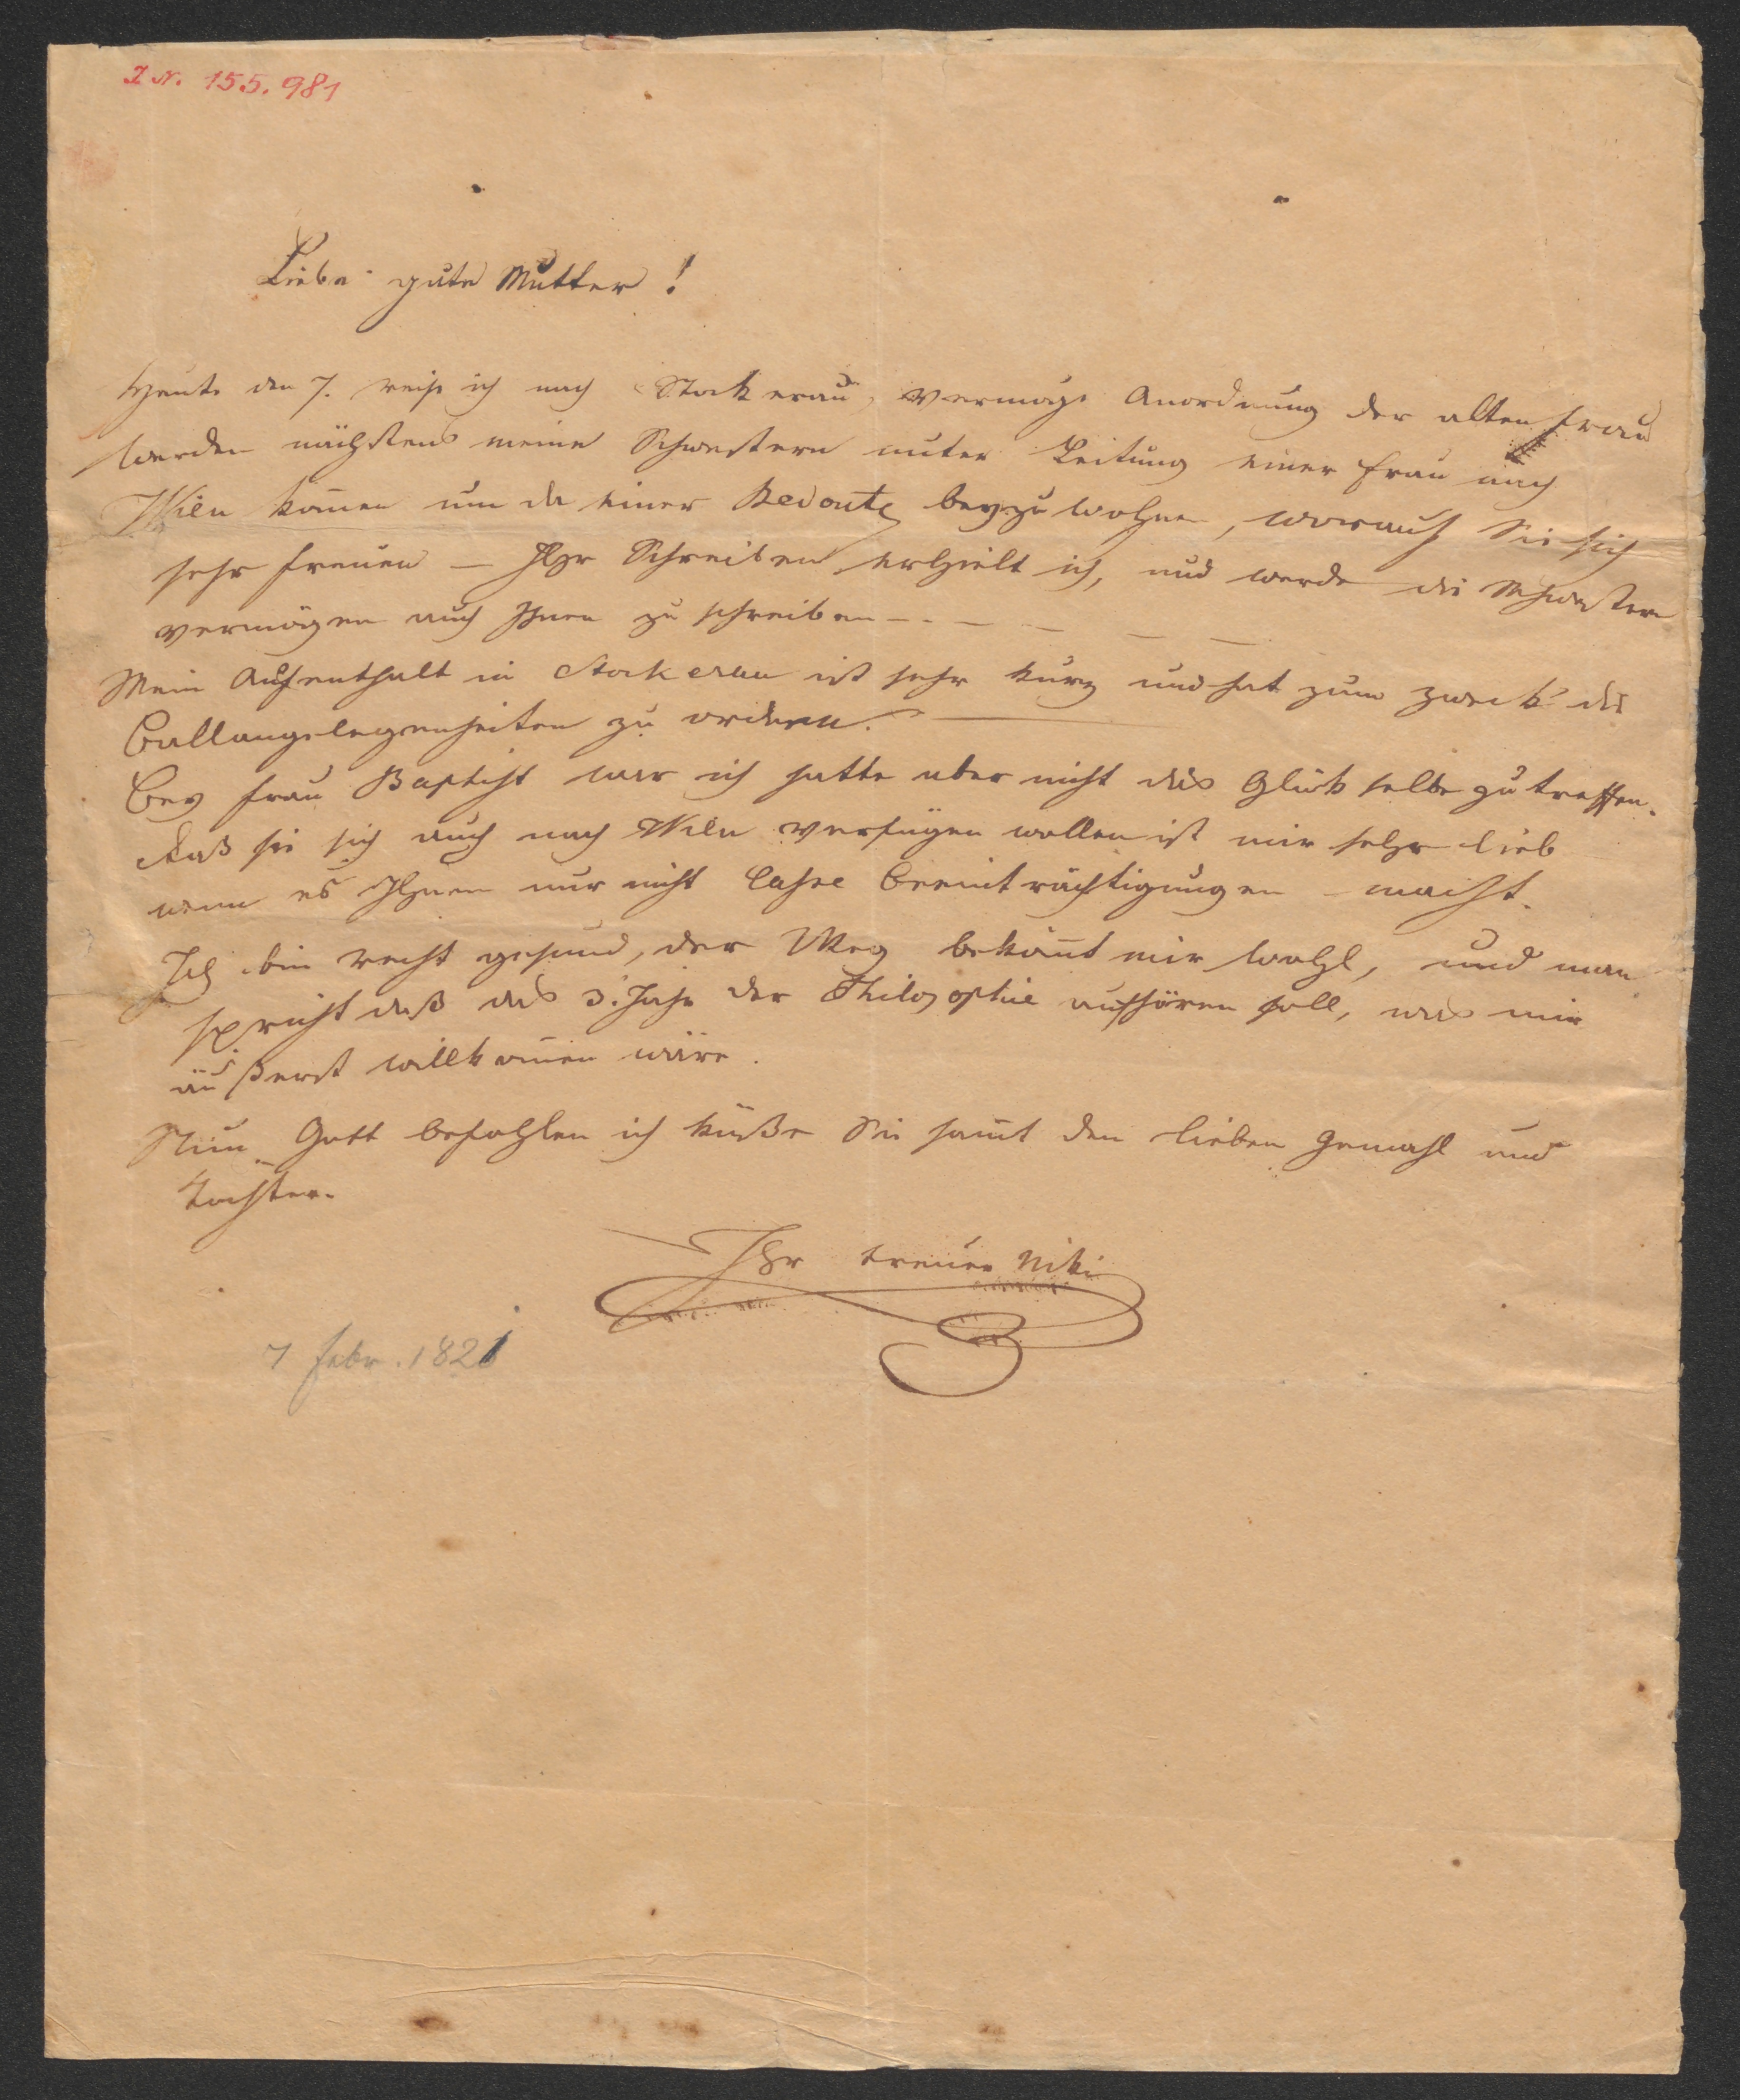 I. N. 155.981
Liebe gute Mutter!
Heute den 7. reise ich nach Stockerau, vermöge Anordnung der alten Frau
werden nächstens meine Schwestern unter Leitung einer Frau nach
Wien kom̄en um da einer Redoute beyzuwohnen, worauf Sie sich
sehr freuen – Ihr Schreiben erhielt ich, und werde die Schwestern
vermögen auch Ihnen zu schreiben – – – – –
Mein Aufenthalt in Stockerau ist sehr kurz und hat zum Zweck die
Ballangelegenheiten zu ordnen. –
Bey Frau Baptist war ich hatte aber nicht das Glück selbe zu treffen.
Daß sie sich auch nach Wien verfügen wollen ist mir sehr lieb
wenn es Ihnen nur nicht Beeinträchtigungen macht.
Ich bin recht gesund, der Weg beköm̄t mir wohl, und man
spricht daß das 3. Jahr der Philosophie aufhören soll, was mir
äußerst willkom̄en wäre.
Nun Gott befohlen ich küße Sie sam̄t den lieben Gemahl und
Tochter.
Ihr treuer Niki
7 Febr. 1821